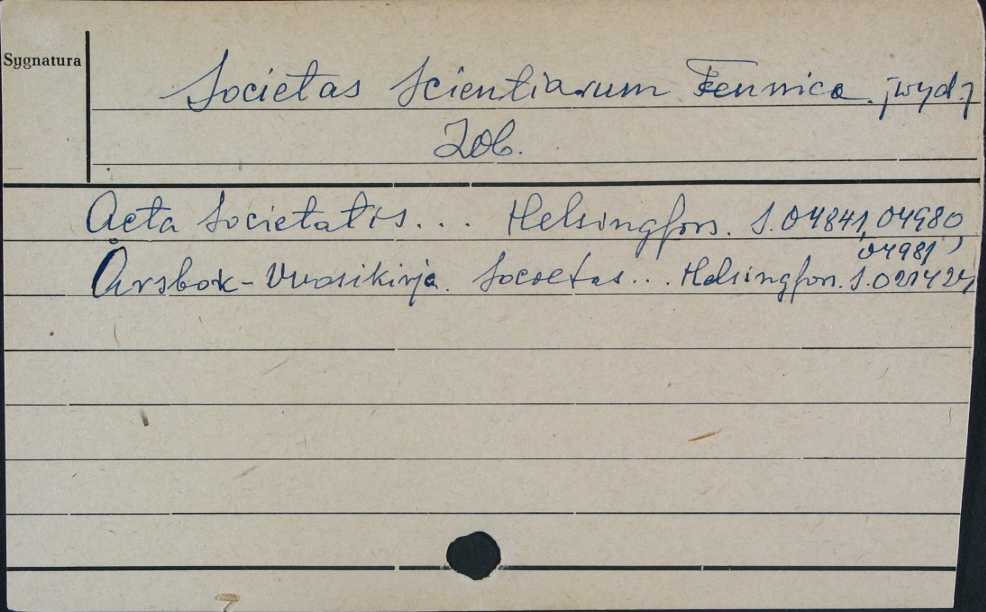 Sygnatura
Societas Scientiarum Fennica. [wyd.]
Zob.
Acta Societatis... Helsingfors. S.04841, 04980,
04981
Årsbok - Vuosikirja. Societas... Helsingfors. S.021424